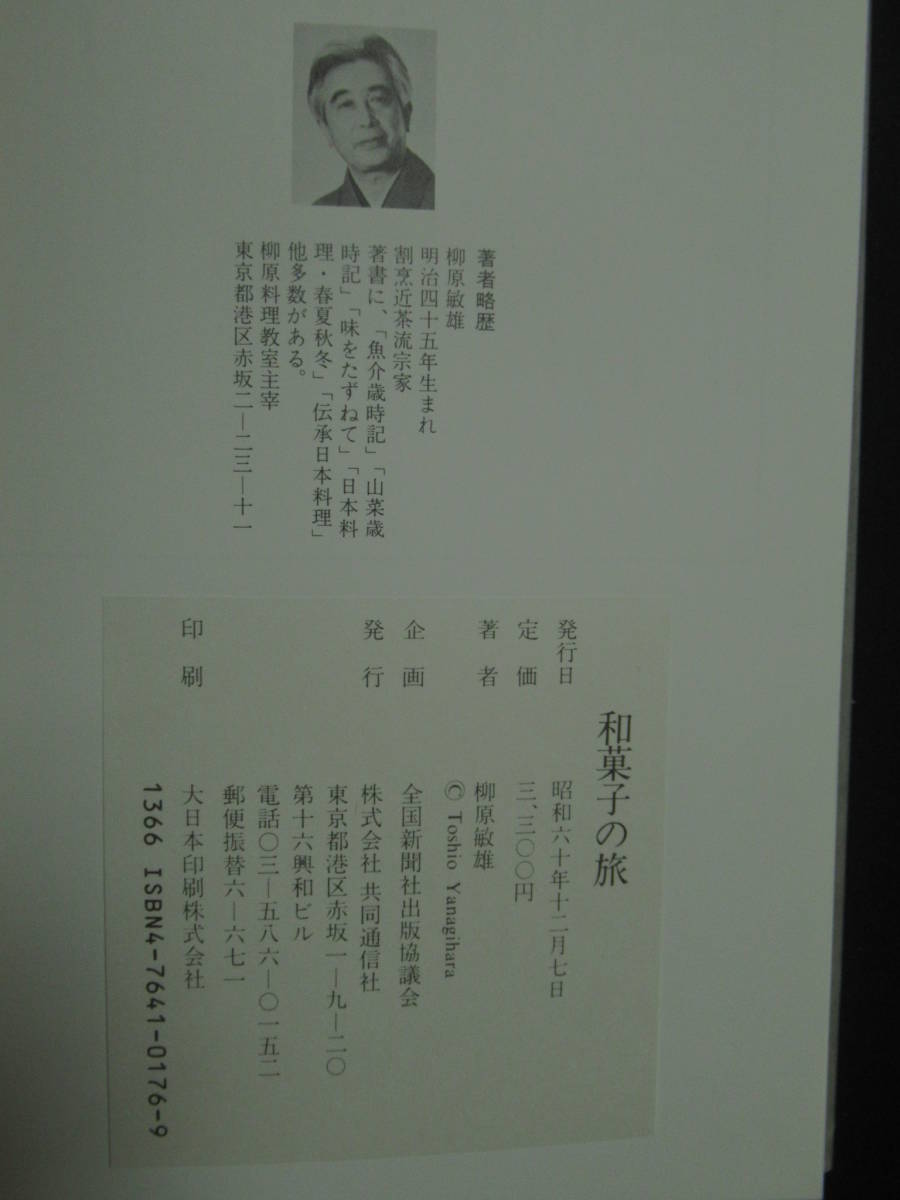 著者略歴
柳原敏雄
明治四十五年生まれ
割烹近茶流宗家
著書に、「魚介歳時記」「山菜歳
時記」「味をたずねて」「日本料
理・春夏秋冬」「伝承日本料理」
他多数がある。
柳原料理教室主宰
東京都港区赤坂二―二三―十一
和菓子の旅
発行日 昭和六十年十二月七日
定価 三、三〇〇円
著者 柳原敏雄
© Toshio Yanagihara
企画 全国新聞社出版協議会
発行 株式会社 共同通信社
東京都港区赤坂一―九―二〇
第十六興和ビル
電話〇三―五八六―〇一五二
郵便振替六―六七一
印刷 大日本印刷株式会社
1366 ISBN4-7641-0176-9